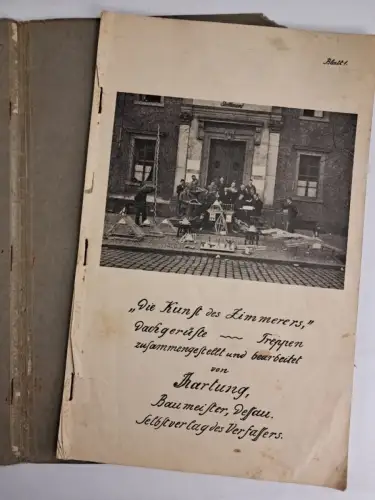 Blatt 1.
„Die Kunst des Zimmerers,"
Dachgerüste ~~~ Treppen
zusammengestellt und bearbeitet
von
Hartung,
Baumeister, Dessau.
Selbstverlag des Verfassers.